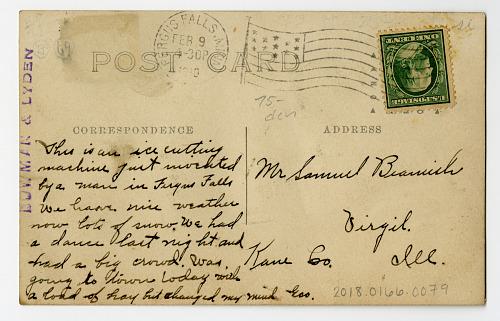 FERGUS FALLS, MINN.
FEB 9
-30P
1910
POST CARD
U.S. POSTAGE
ONE CENT
75-
& LYDEN
CORRESPONDENCE
This is an ice cutting
machine just invented
by a man in Fergus Falls
We have nice weather
now lots of snow. We had
a dance last night and
had a big crowd. Was
going to town today with
a load of hay but changed my mind Geo.
ADDRESS
Mr Samuel Beamish
Virgil.
Kane Co. Ill.
2018.0166.0079